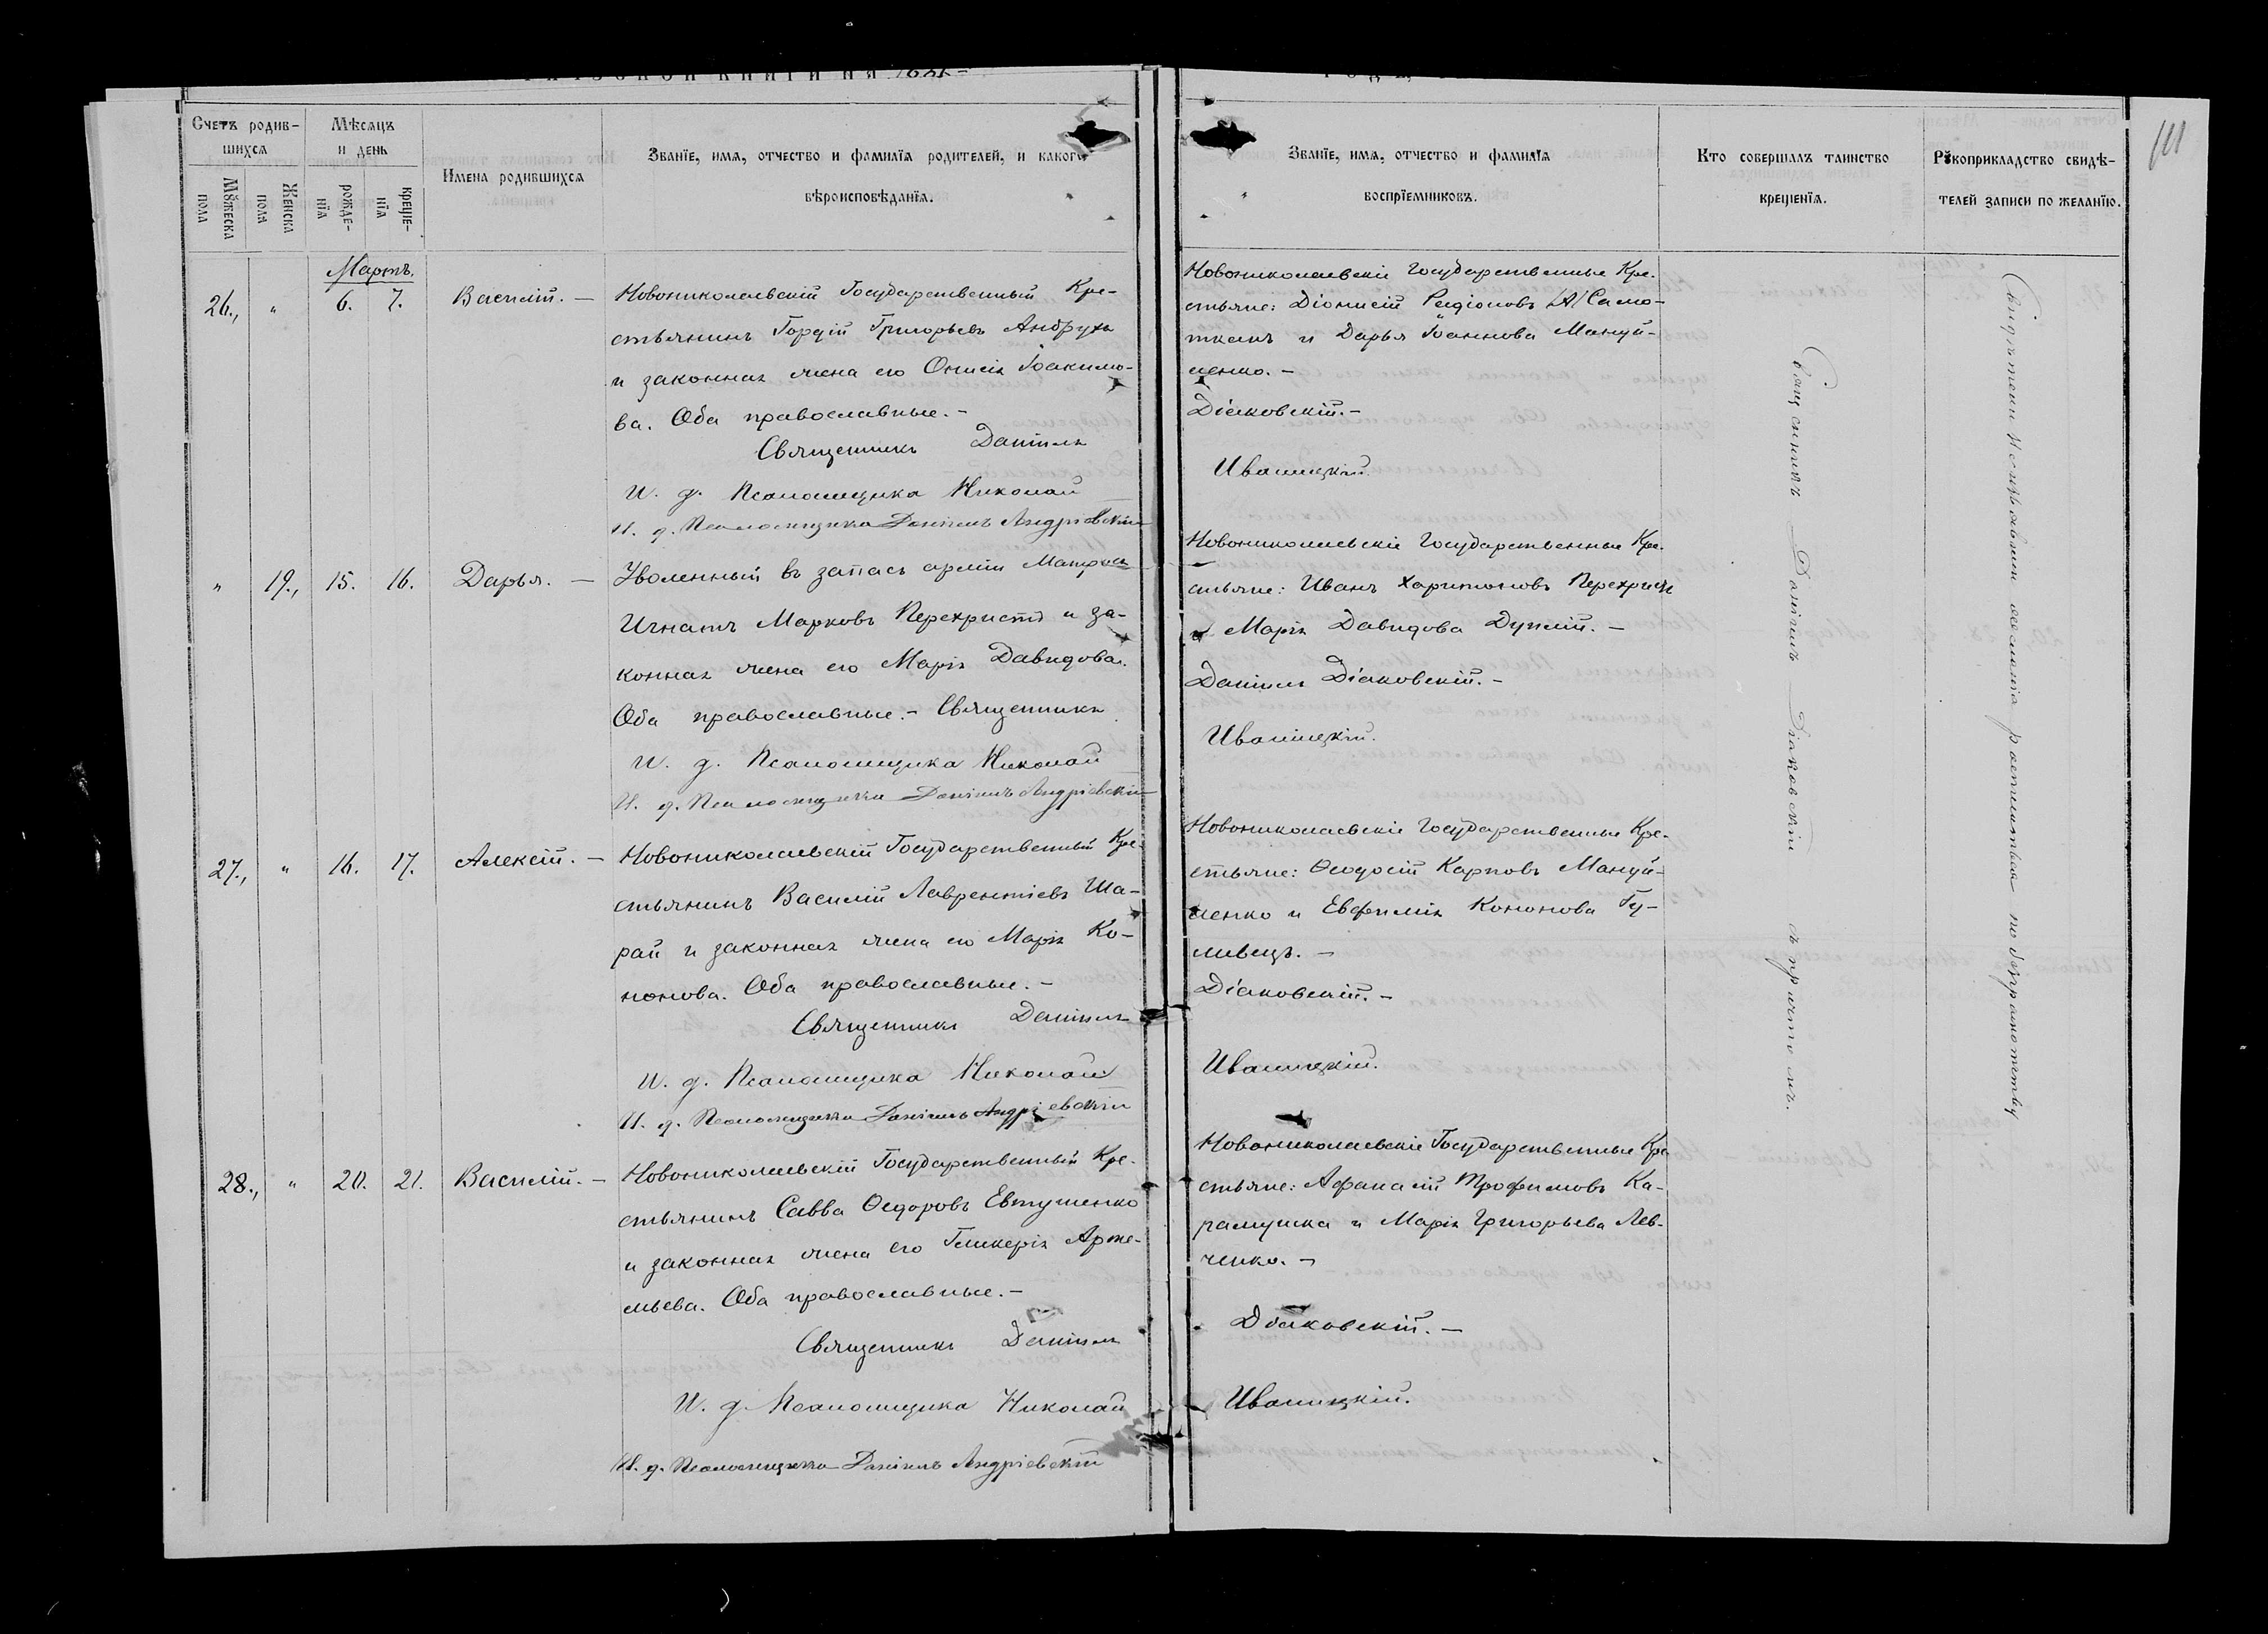 Счетъ родив-
шихся
Мѣсяцъ
и день
Мꙋжеска
пола
Женска
пола
рожде-
нїя
креще-
нїя
Имена родившихся
Званїе, имя, отчество и фамилїя родителей, и какого
вѣроисповѣданїя.
Званїе, имя, отчество и фамилїя
воспрїемниковъ.
Кто совершалъ таинство
крещенїя.
Рꙋкоприкладство свидѣ-
телей записи по желанїю.
111
Мартъ.
26., " 6. 7. Василій. —
Новониколаевскій Государственный Кре-
стьянинъ Гордій Григорьевъ Андрухъ
и законная жена его Онисія Іоакимо-
ва. Оба православные. -
Священникъ Даніилъ
И. д. Псаломщика Николай
И. д. Псаломщика Даніилъ Андріевскій
Новониколаевскіе Государственные Кре-
стьяне: Діонисій Родіоновъ Само-
ткакъ и Дарья Іоаннова Мануй-
ленко. -
Діаковскій. -
Иваницкій.
" 19., 15. 16. Дарья. —
Уволенный въ запасъ арміи Матросъ
Игнатъ Марковъ Перехристъ и за-
конная жена его Марія Давидова.
Оба православные. - Священникъ
И. д. Псаломщика Николай
И. д. Псаломщика Даніилъ Андріевскій
Новониколаевскіе Государственные Кре-
стьяне: Иванъ Харитоновъ Перехристъ
и Марія Давидова Дуплій. -
Даніилъ Діаковскій. -
Иваницкій.
27., " 16. 17. Алексій. —
Новониколаевскій Государственный Кре-
стьянинъ Василій Лаврентіевъ Ша-
рай и законная жена его Марія Ко-
нонова. Оба православные. -
Священникъ Даніилъ
И. д. Псаломщика Николай
И. д. Псаломщика Даніилъ Андріевскій
Новониколаевскіе Государственные Кре-
стьяне: Ѳеодосій Карповъ Мануй-
ленко и Евфимія Кононова Гу-
ливецъ. -
Діаковскій. -
Иваницкій.
28., " 20. 21. Василій. —
Новониколаевскій Государственный Кре-
стьянинъ Савва Ѳедоровъ Евтушенко
и законная жена его Гликерія Арте-
мьева. Оба православные. -
Священникъ Даніилъ
И. д. Псаломщика Николай
И. д. Псаломщика Даніилъ Андріевскій
Новониколаевскіе Государственные Кре-
стьяне: Афанасій Трофимовъ Ка-
рамушка и Марія Григорьева Лев-
ченко. -
Діаковскій. -
Иваницкій.
Священникъ Даніилъ Діаковскій съ причтомъ.
Свидѣтели не изъявили желанія росписаться по безграмотству